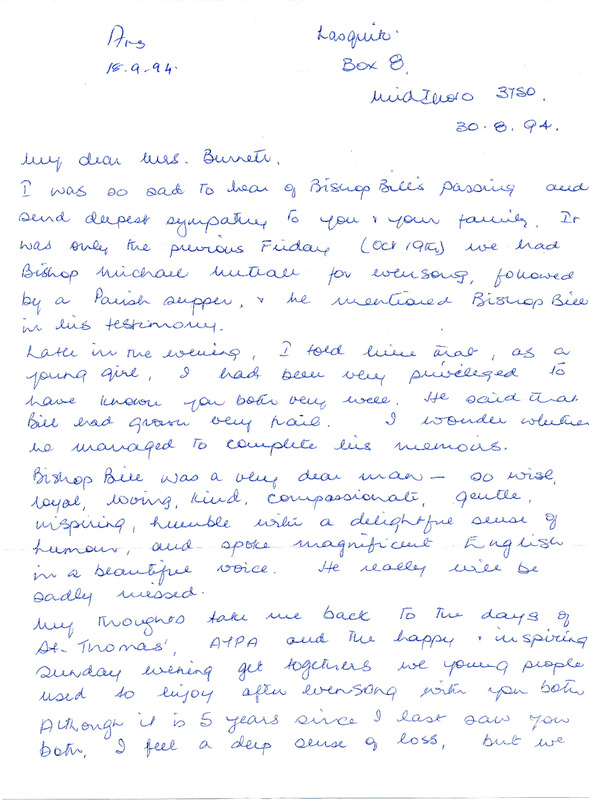 Ans
18.9.94.
Box 8,
3780.
30.8.94.
My dear Mrs. Burnett,
I was so sad to hear of Bishop Bill's passing and
send deepest sympathy to you & your family. It
was only the previous Friday (Oct 19th) we had
Bishop Michael Nuttall for evensong, followed
by a Parish supper, & he mentioned Bishop Bill
in his testimony.
Late in the evening, I told him that, as a
young girl, I had been very privileged to
have known you both very well. He said that
Bill had grown very frail. I wonder whether
he managed to complete his memoirs.
Bishop Bill was a very dear man – so wise,
loyal, loving, kind, compassionate, gentle,
inspiring, humble with a delightful sense of
humour, and spoke magnificent English
in a beautiful voice. He really will be
sadly missed.
My thoughts take me back to the days of
St. Thomas', AYPA and the happy & inspiring
Sunday evening get togethers we young people
used to enjoy after evensong with you both
Although it is 5 years since I last saw you
both, I feel a deep sense of loss, but we